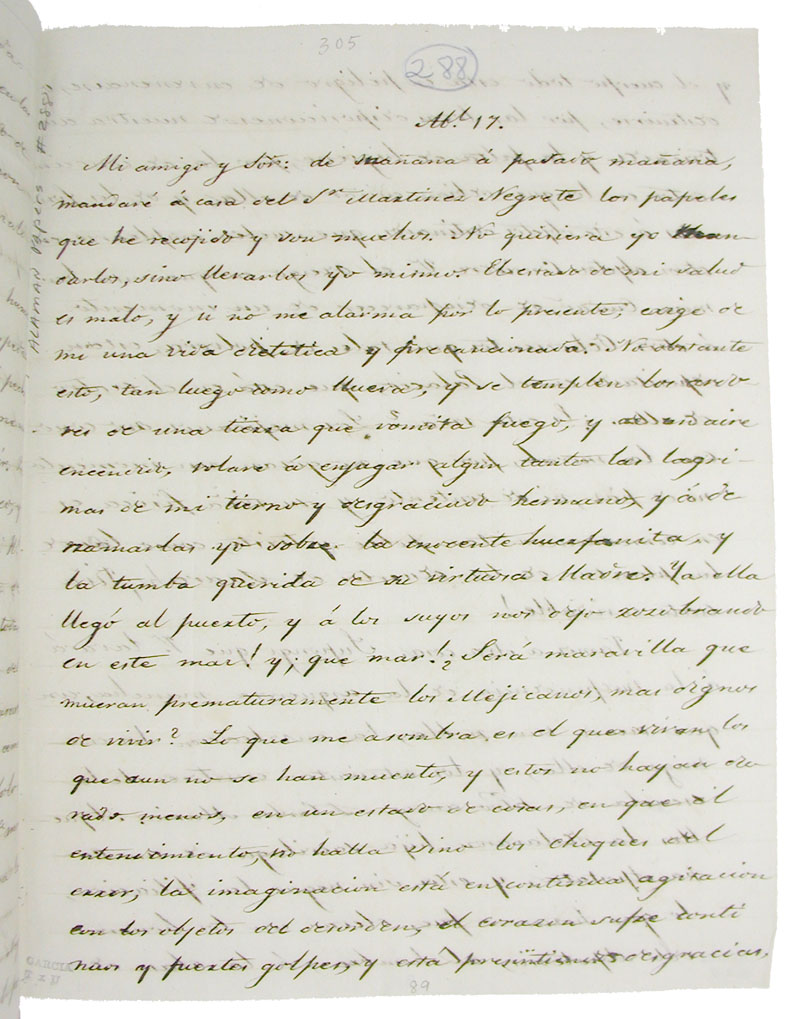 305
288
Ab.l 17.
Mi amigo y Sõr: de mañana á pasado mañana,
mandaré á casa del S.r Martinez Negrete los papeles
que he recojido y son muchos. No quisiera yo man-
darlos, sino llevarlos yo mismo. El estado de mi salud
es malo, y si no me alarma por lo presente, exige de
mi una vida dietetica y precaucionada. No obstante
esto, tan luego como llueva, y se templen los ardo-
res de una tierra que vomita fuego, y de un aire
encendido, volaré á enjagar algun tanto las lagri-
mas de mi tierno y desgraciado hermano, y á de
rramarlas yo sobre la inocente huerfanita, y
la tumba querida de su virtuosa Madre. Ya ella
llegó al puerto, y á los suyos nos dejo zozobrando
en este mar! y ¡que mar! ¿Será maravilla que
mueran prematuramente los Mejicanos, mas dignos
de vivir? Lo que me asombra es el que vivan los
que aun no se han muerto, y estos no hayan
menos, en un estado de cosas, en que el
entendimiento, no halla sino los choques del
error, la imaginacion está en continua agitacion
con los objetos del desorden, el corazon sufre conti
nuos y fuertes golpes, y está desgracias,
89
ALAMAN Papers #288
GARCIA